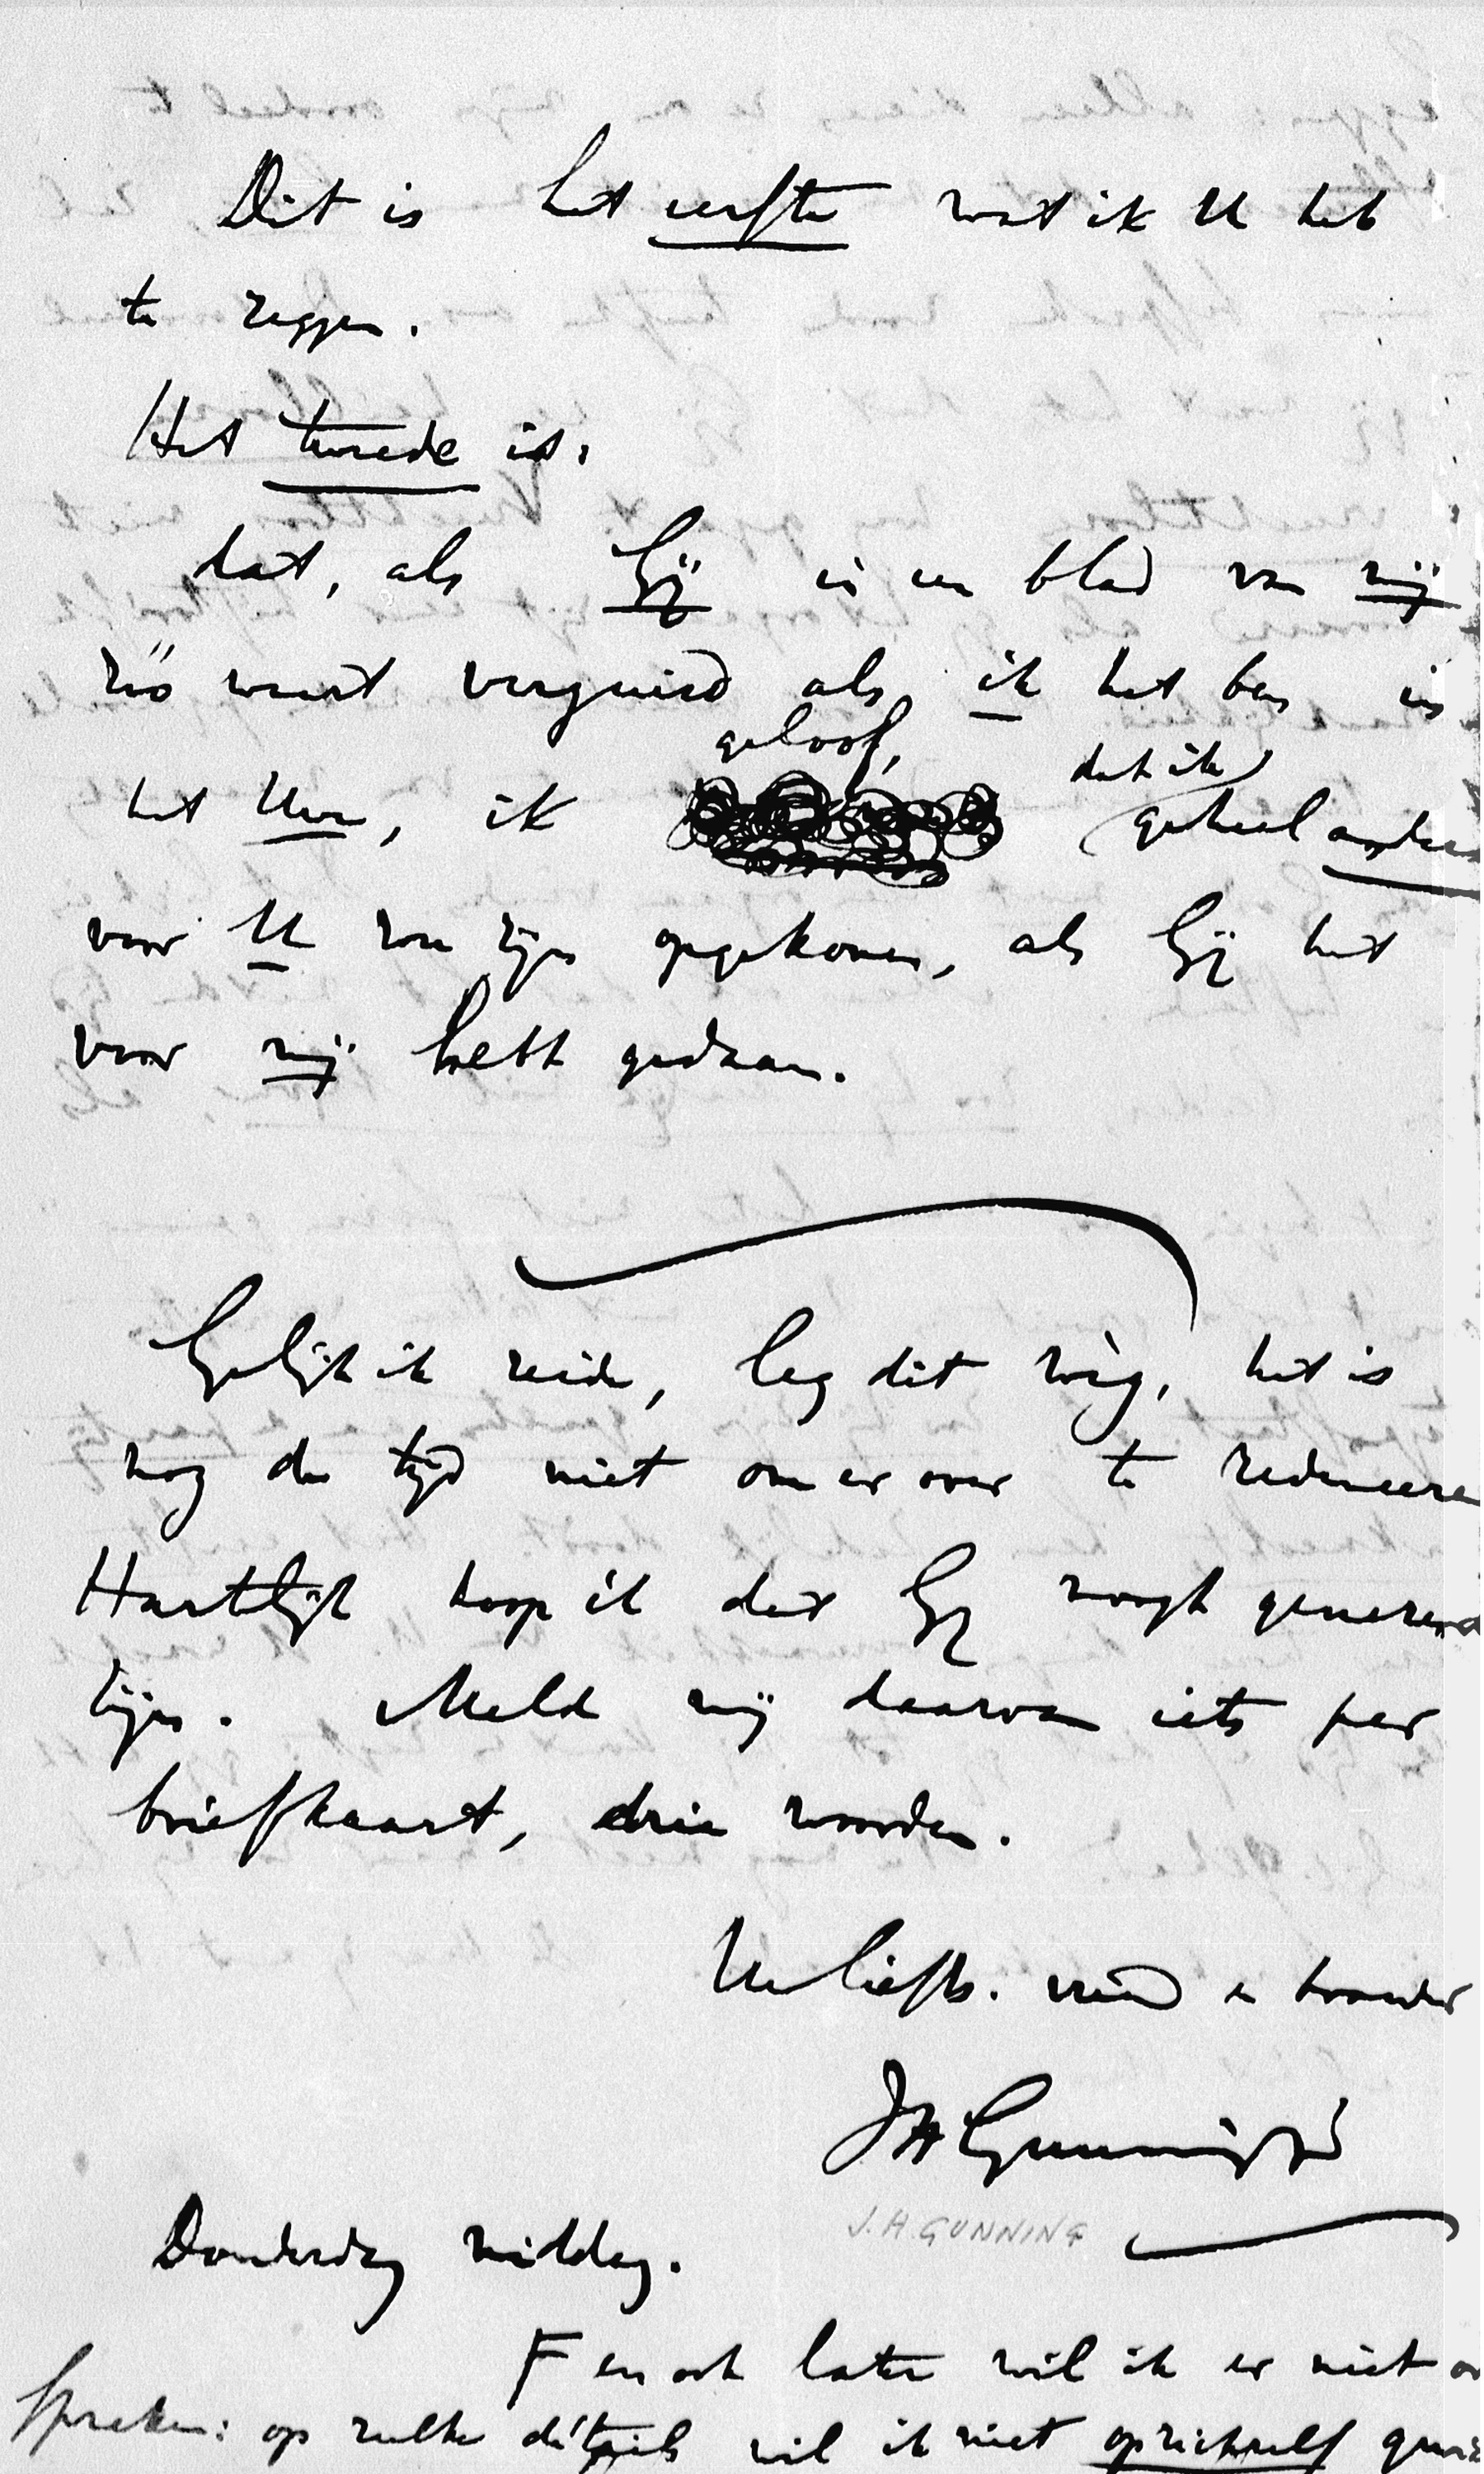 Dit is het eerste wat ik U heb
te zeggen.
Het tweede is:
dat, als Gij in een blad van mij
zóó waart verguisd als ik het ben in
geloof, dat ik
het Uwe, ik geheel anders
voor U zou zijn opgekomen, als Gij het
voor mij hebt gedaan.
Gelijk ik zeide, leg dit wèg, het is
nog de tijd niet om er over te
Hartelijk hoop ik dat Gij moogt
zijn. Meld mij daarvan iets per
briefkaart, drie woorden.
Uw liefh. vriend en broeder
JHGunning Jr
J.H. GUNNING
Donderdag middag.
F en ook later wil ik er niet
spreken: op zulke détails wil ik niet opzichzelf